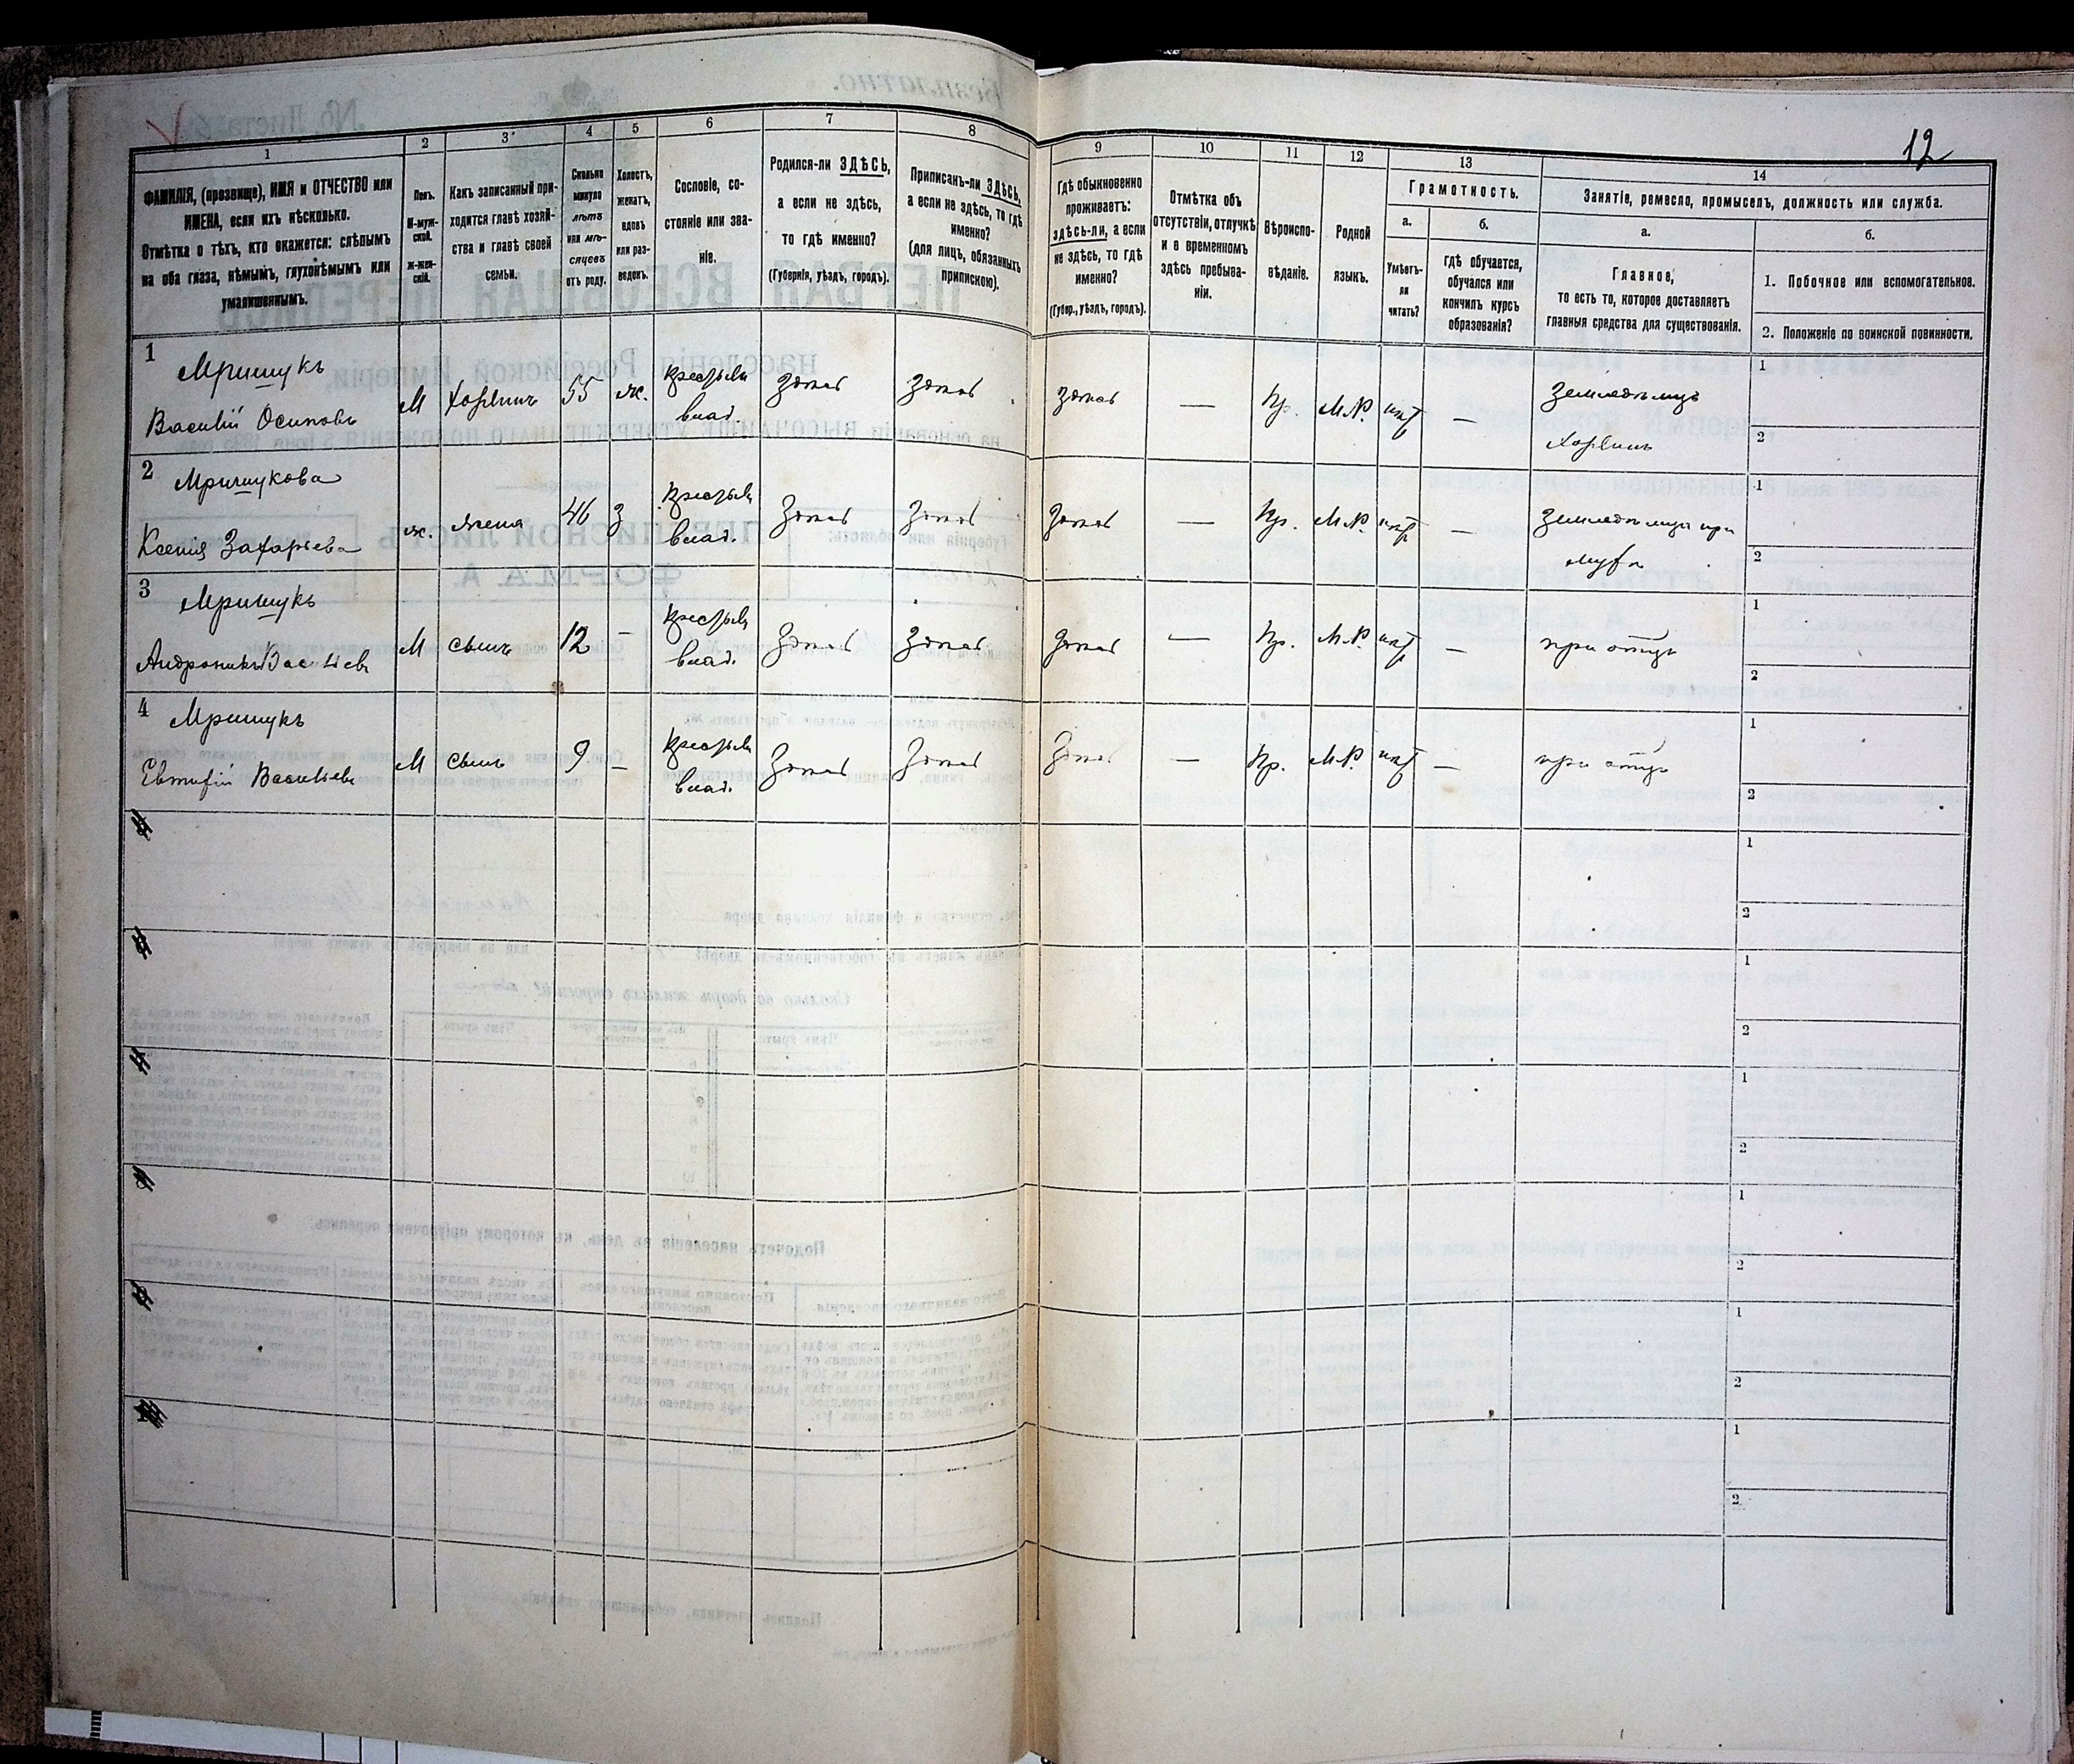 12
1
2
3
4
5
6
7
8
9
10
11
12
13
14
ФАМИЛІЯ, (прозвище), ИМЯ и ОТЧЕСТВО или
ИМЕНА, если ихъ нѣсколько.
Отмѣтка о тѣхъ, кто окажется: слѣпымъ
на оба глаза, нѣмымъ, глухонѣмымъ или
умалишеннымъ.
Полъ.
М-муж-
ской.
Ж-жен-
скій.
Какъ записанный при-
ходится главѣ хозяй-
ства и главѣ своей
семьи.
Сколько
минуло
лѣтъ
или мѣ-
сяцевъ
отъ роду.
Холостъ,
женатъ,
вдовъ
или раз-
веденъ.
Сословіе, со-
стояніе или зва-
ніе.
Родился-ли ЗДѢСЬ,
а если не здѣсь,
то гдѣ именно?
(Губернія, уѣздъ, городъ).
Приписанъ-ли ЗДѢСЬ,
а если не здѣсь, то гдѣ
именно?
(для лицъ, обязанныхъ
припискою).
Гдѣ обыкновенно
проживаетъ:
здѣсь-ли, а если
не здѣсь, то гдѣ
именно?
(Губер., уѣздъ, городъ).
Отмѣтка объ
отсутствіи, отлучкѣ
и о временномъ
здѣсь пребыва-
ніи.
Вѣроиспо-
вѣданіе.
Родной
языкъ.
Грамотность.
а.
б.
Умѣетъ-
ли
читать?
гдѣ обучается,
обучался или
кончилъ курсъ
образованія?
Занятіе, ремесло, промыселъ, должность или служба.
а.
б.
Главное,
то есть то, которое доставляетъ
главныя средства для существованія.
1. Побочное или вспомогательное.
2. Положеніе по воинской повинности.
1
Мришукъ
Василій Осиповъ
М
хозяинъ
55
ж.
крестьян
влад.
здѣсь
здѣсь
здѣсь
—
Пр.
М.Р.
нѣт
—
Земледѣлецъ
хозяинъ
1
2
2
Мришукова
Ксенія Захарьева
ж.
жена
46
З
крестьян
влад.
здѣсь
здѣсь
здѣсь
—
Пр.
М.Р.
нѣт
—
Земледѣлица при
мужѣ
1
2
3
Мришукъ
Андроникъ Васильевъ
М
сынъ
12
—
крестьян
влад.
здѣсь
здѣсь
здѣсь
—
Пр.
М.Р.
нѣт
—
при отцѣ
1
2
4
Мришукъ
Евтифій Васильевъ
М
сынъ
9
—
крестьян
влад.
здѣсь
здѣсь
здѣсь
—
Пр.
М.Р.
нѣт
—
при отцѣ
1
2
1
2
1
2
1
2
1
2
1
2
1
2